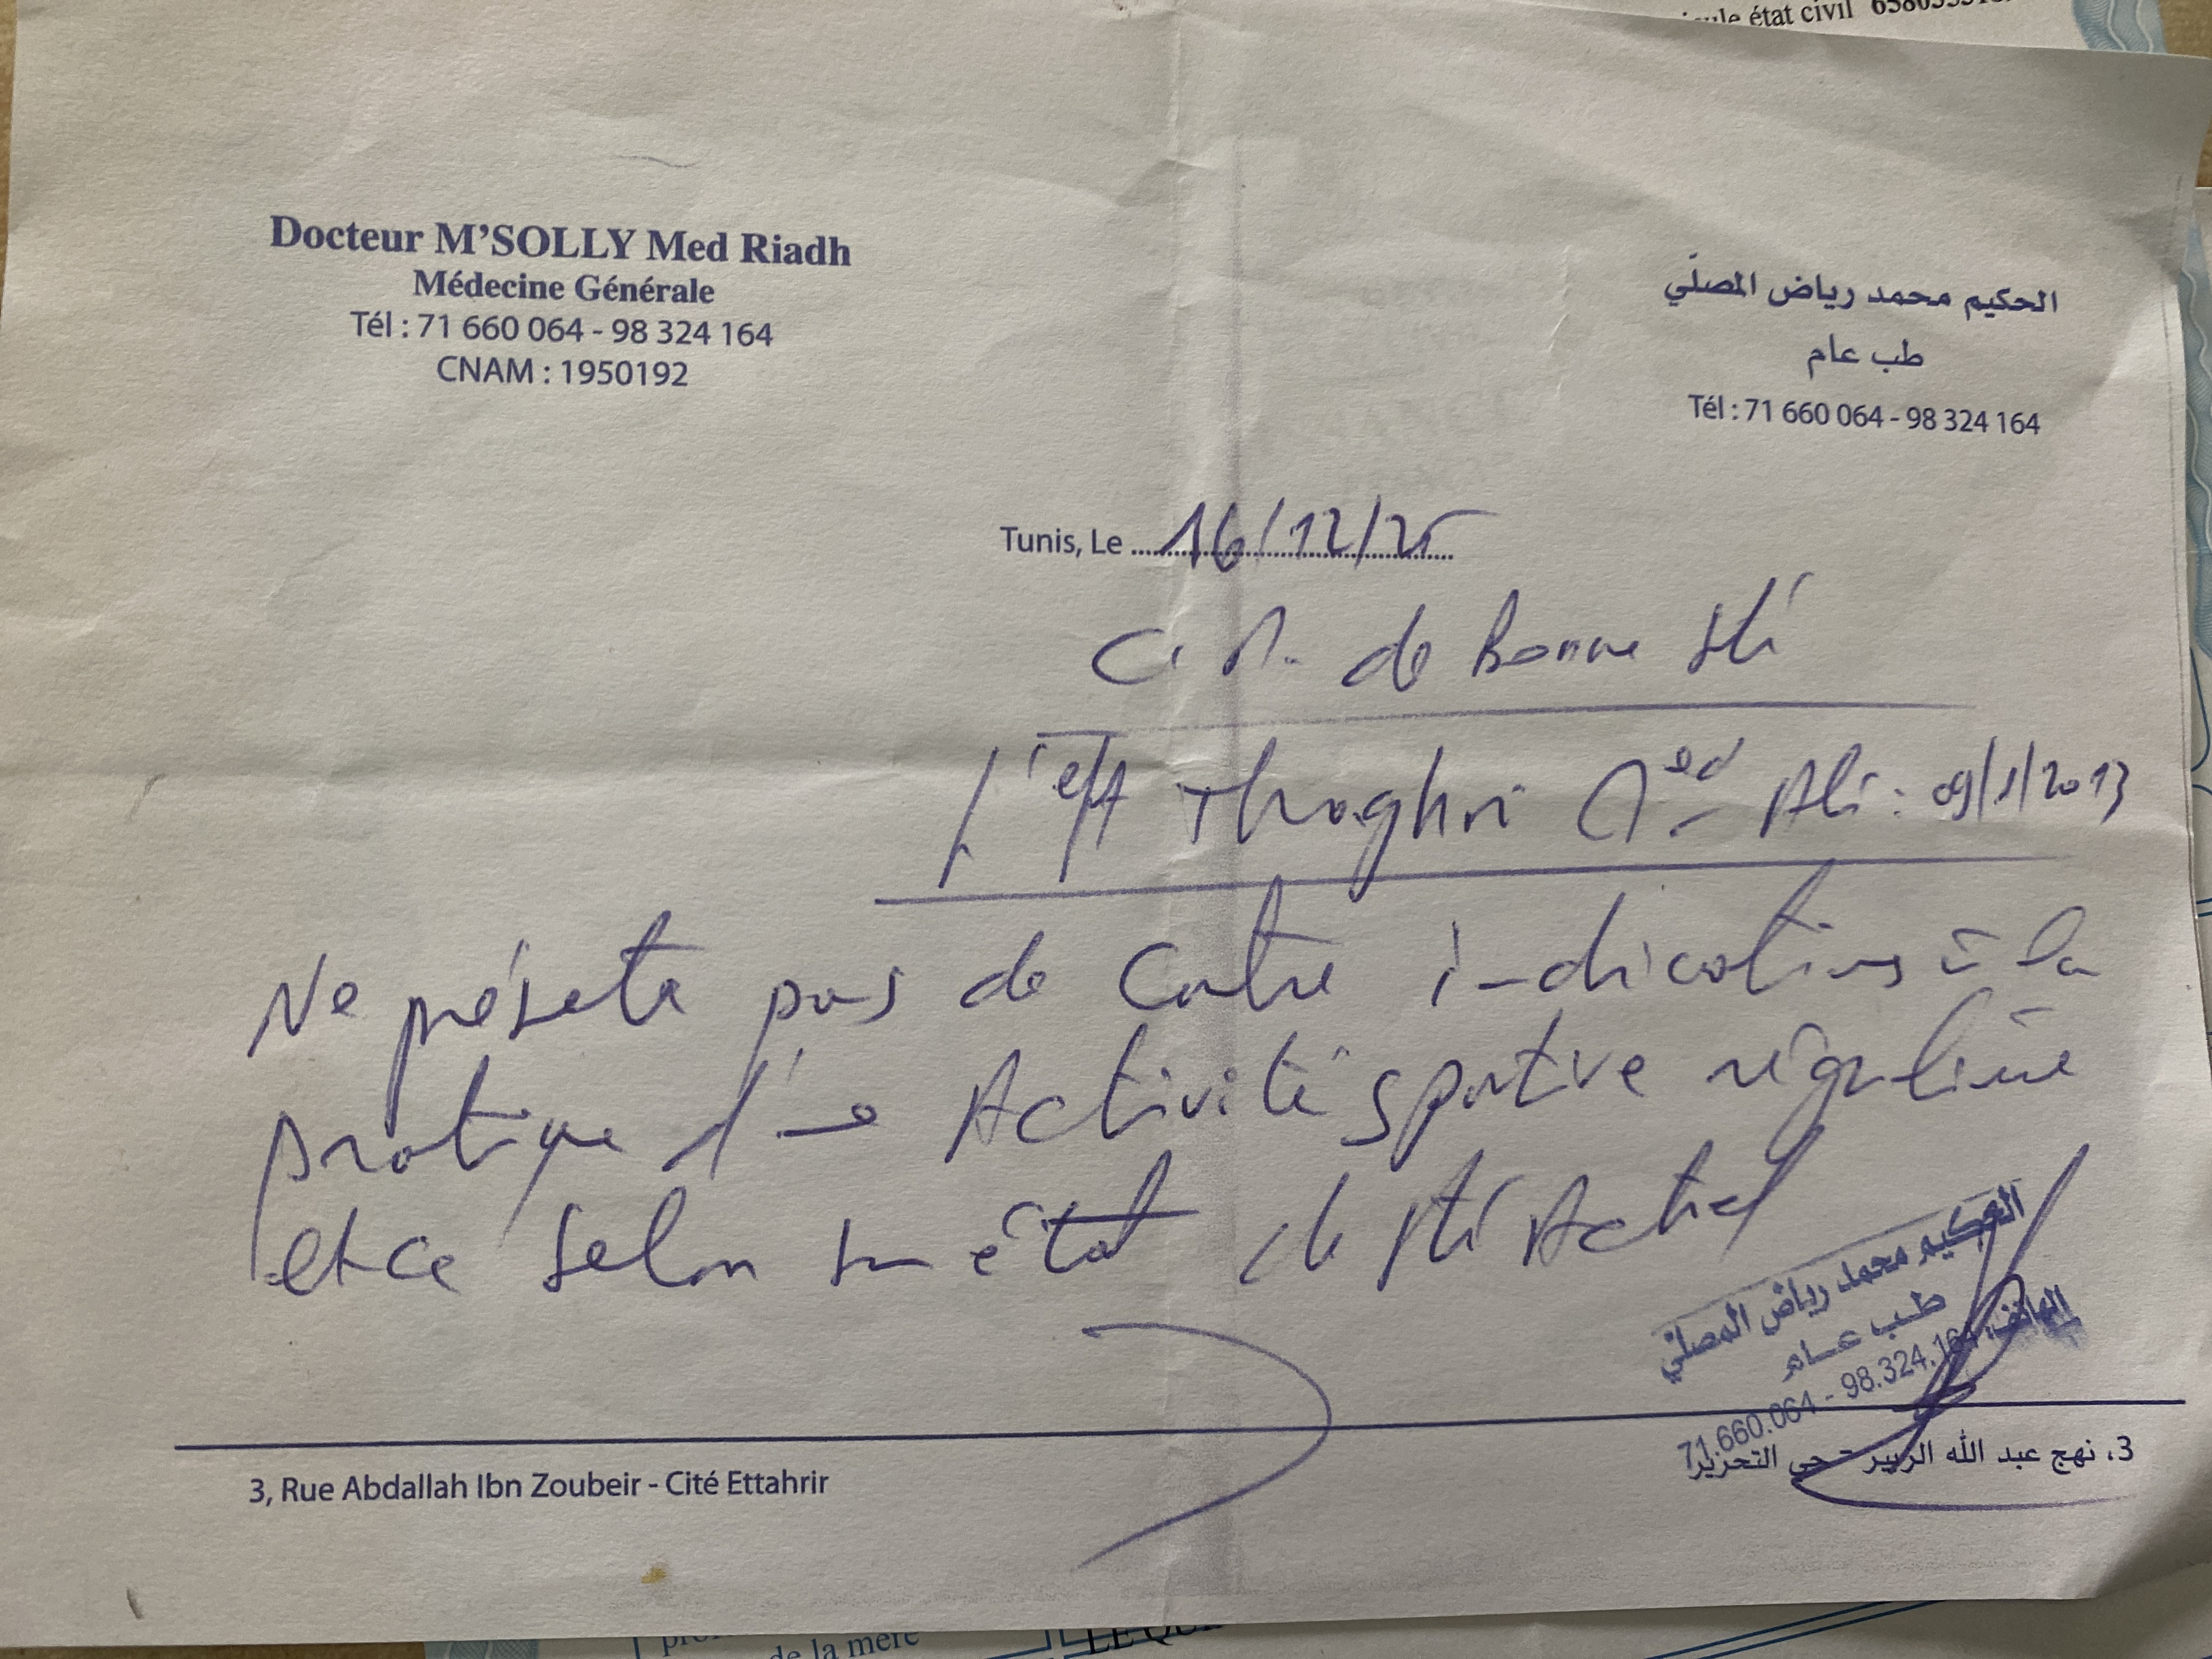 état civil
Docteur M'SOLLY Med Riadh
Médecine Générale
Tél : 71 660 064 - 98 324 164
CNAM : 1950192
الحكيم محمد رياض المصلّي
طب عام
Tél : 71 660 064 - 98 324 164
Tunis, Le 16/12/25
C. M. de Bonne Sté
L'eft Thraghri Med Ali : 09/1/2013
Ne présente pas de contre indications à la
pratique d'une Activité sportive régulière
et ce selon son état de Sté Actuel
الحكيم محمد رياض المصلّي
طب عام
الهاتف: 71.660.064 - 98.324.164
3, Rue Abdallah Ibn Zoubeir - Cité Ettahrir
3، نهج عبد الله الزبير - حي التحرير
de la mère